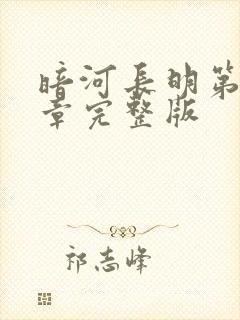 暗河长明第
章完整版
祁志峰